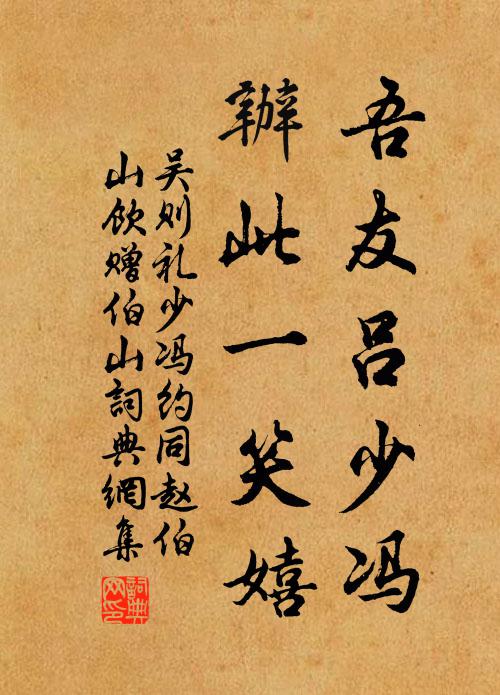 吾友吕少冯
辦此一笑嬉
吴则礼少冯约同赵伯
山饮赠伯山詞典網集
詞典网印